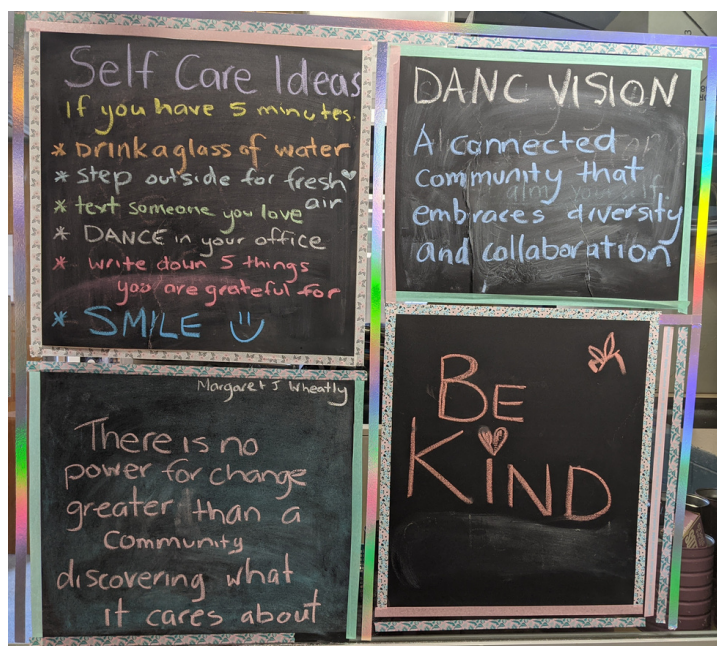 Self Care Ideas
If you have 5 minutes.
* Drink a glass of water
* Step outside for fresh
air
* text someone you love
* DANCE in your office
* write down 5 things
you are grateful for
* SMILE
DANC VISION
A connected
community that
embraces diversity
and collaboration
Margaret J Wheatly
There is no
power for change
greater than a
community
discovering what
it cares about
BE
KiND